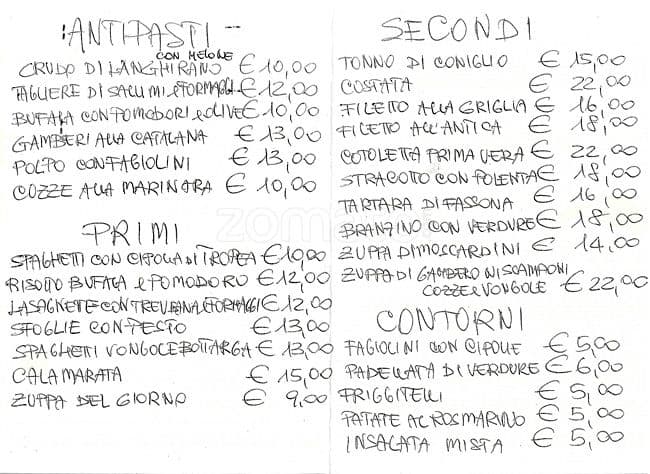 ANTIPASTI
CRUDO DI LANGHIRANO CON MELONE € 10,00
TAGLIERE DI SALUMI e FORMAGGI € 12,00
BUFALA CON POMODORI e OLIVE € 10,00
GAMBERI ALLA CATALANA € 13,00
POLPO CON FAGIOLINI € 13,00
COZZE ALLA MARINARA € 10,00
PRIMI
SPAGHETTI CON CIPOLLA DI TROPEA € 10,00
RISOTTO BUFALA e POMODORO € 12,00
LASAGNETTE CON TREVISANA e FORMAGGI € 12,00
SFOGLIE CON PESTO € 13,00
SPAGHETTI VONGOLE BOTTARGA € 13,00
CALAMARATA € 15,00
ZUPPA DEL GIORNO € 9,00
SECONDI
TONNO DI CONIGLIO € 15,00
COSTATA € 22,00
FILETTO ALLA GRIGLIA € 16,00
FILETTO ALL'ANTICA € 18,00
COTOLETTA PRIMAVERA € 22,00
STRACOTTO CON POLENTA € 18,00
TARTARA DI FASSONA € 16,00
BRANZINO CON VERDURE € 18,00
ZUPPA DI MOSCARDINI € 14,00
ZUPPA DI GAMBERONI SCAMPONI
COZZE e VONGOLE € 22,00
CONTORNI
FAGIOLINI CON CIPOLLE € 5,00
PADELLATA DI VERDURE € 6,00
FRIGGITELLI € 5,00
PATATE AL ROSMARINO € 5,00
INSALATA MISTA € 5,00